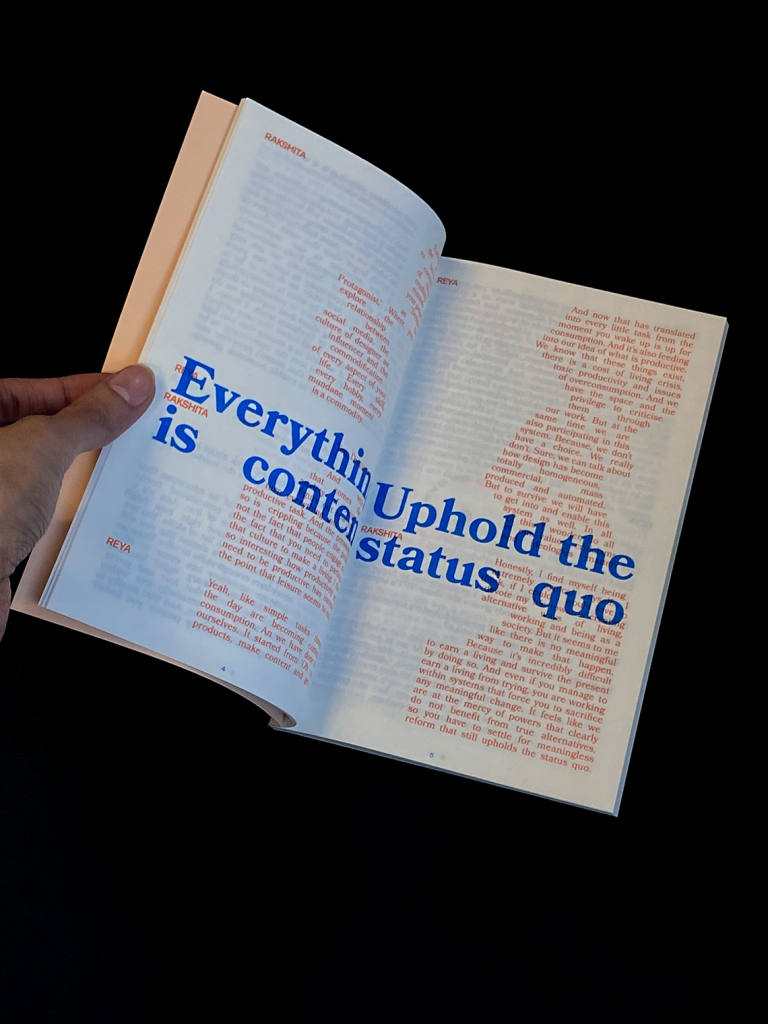 RAKSHITA
Protagonist.' Where
explore the
relationship
between
social media, the
culture of designer as
influencer and the
commodification
of every aspect of your
life. Every
every hobby, every
mundane moment
is a commodity.
REYA
RAKSHITA
Everythin
is conten
And
productive task. And the
so is crippling because
not the fact that people
the fact that you need to
that culture to make a living
so interesting how productivity
need to be productive has
the point that leisure seems
REYA
Yeah, like simple tasks
the day are becoming
consumption. As we have
ourselves. It started from
products, make content and
4
REYA
And now that has translated
into every little task from the
moment you wake up is up for
consumption. And it's also feeding
into our idea of what is productive.
We know that these things exist,
there is a cost of living crisis,
toxic productivity and issues
of overconsumption. And we
have the space and the
privilege to criticise
them through
our work. But at the
same time we are
also participating in this
system. Because, we don't
have a choice. We really
don't. Sure, we can talk about
how design has become
totally homogeneous,
commercial, mass
produced and automated.
But to survive we will have
to get into and enable this
system as well. In all
Uphold the
status quo
RAKSHITA
Honestly, I find myself being
alternative of living,
working and being as a
society. But it seems to me
like there is no meaningful
way to make that happen.
Because it's incredibly difficult
to earn a living and survive the present
by doing so. And even if you manage to
earn a living from trying, you are working
within systems that force you to sacrifice
any meaningful change. It feels like we
are at the mercy of powers that clearly
do not benefit from true alternatives,
so you have to settle for meaningless
reform that still upholds the status quo.
5